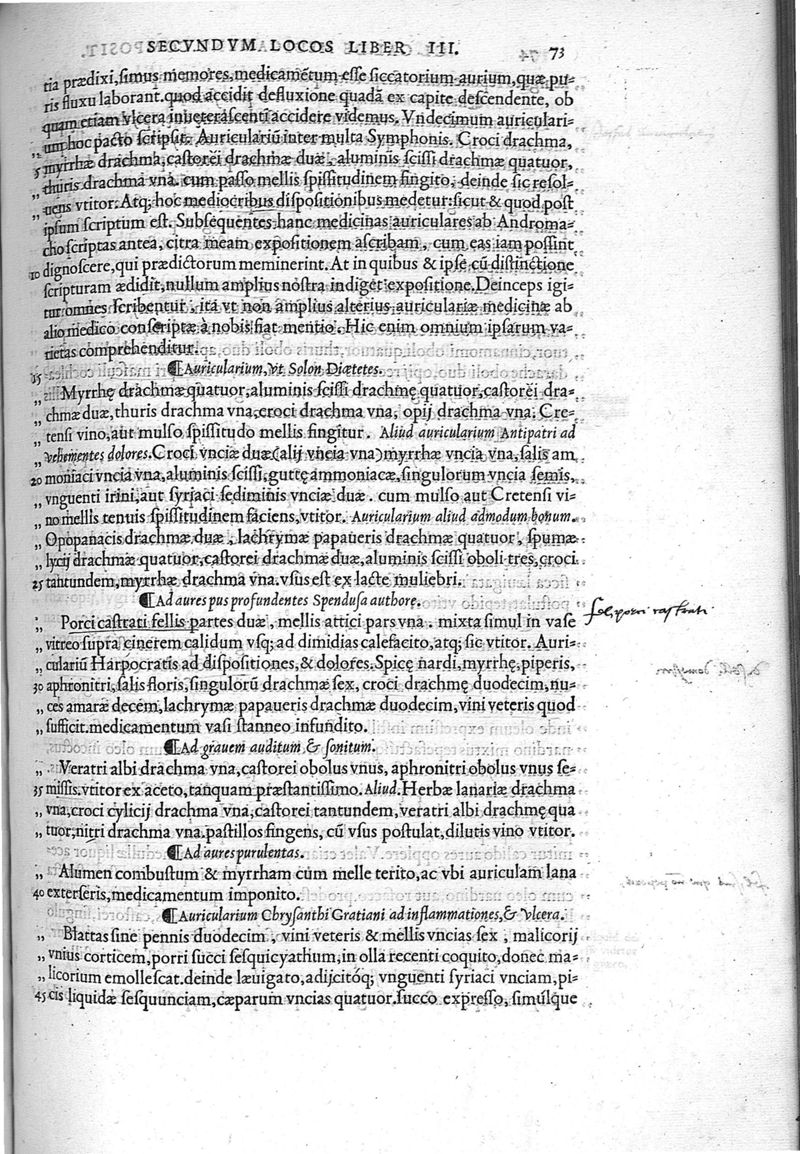 SECVNDVM LOCOS LIBER III. 73
tia prædixi, simus memores, medicamētum esse siccatorium aurium, quæ pu-
ris fluxu laborant. quod accidit defluxione quadã ex capite descendente, ob
quam etiam vlcera inueterascenti accidere videmus. Vndecimum auriculari-
um hoc pacto scripsit. Auriculariũ inter multa Symphonis. Croci drachma,
„ myrrhæ drachma, castorei drachmæ duæ, aluminis scissi drachmæ quatuor,
5 thuris drachma vna. cum passo mellis spissitudinem fingito, deinde sic resol-
„ uens vtitor. Atq; hoc mediocribus dispositionibus medetur: sicut & quod post
ipsum scriptum est. Subsequentes hanc medicinas auriculares ab Androma-
cho scriptas antea, citra meam expositionem ascribam, cum eas iam possint
10 dignoscere, qui prædictorum meminerint. At in quibus & ipse cũ distinctione
scripturam ædidit, nullum amplius nostra indiget expositione. Deinceps igi-
tur omnes scribentur, ita vt non amplius alterius auriculariæ medicinæ ab
alio medico conscriptæ à nobis fiat mentio. Hic enim omnium ipsarum va-
rietas comprehenditur.
15 ¶Auricularium, vt Solon Diætetes.
„ Myrrhę drachmæ quatuor, aluminis scissi drachmę quatuor, castorei dra-
„ chmæ duæ, thuris drachma vna, croci drachma vna, opij drachma vna. Cre-
„ tensi vino, aut mulso spissitudo mellis fingitur. Aliud auricularium Antipatri ad
„ vehementes dolores. Croci vnciæ duæ (alij vncia vna) myrrhæ vncia vna, salis am
20 moniaci vncia vna, aluminis scissi, guttę ammoniacæ, singulorum vncia semis,
„ vnguenti irini, aut syriaci sediminis vnciæ duæ. cum mulso aut Cretensi vi-
„ no mellis tenuis spissitudinem faciens, vtitor. Auricularium aliud admodum bonum.
„ Opopanacis drachmæ duæ, lachrymæ papaueris drachmæ quatuor, spumæ
„ lycij drachmæ quatuor, castorei drachmæ duæ, aluminis scissi oboli tres, croci
25 tantundem, myrrhæ drachma vna. vsus est ex lacte muliebri.
¶Ad aures pus profundentes Spendusa authore.
„ Porci castrati fellis partes duæ, mellis attici pars vna. mixta simul in vase
„ vitreo supra cinerem calidum vsq; ad dimidias calefacito, atq; sic vtitor. Auri-
„ culariũ Harpocratis ad dispositiones, & dolores. Spicę nardi, myrrhę, piperis,
30 aphronitri, salis floris, singulorũ drachmæ sex, croci drachmę duodecim, nu-
„ ces amaræ decem, lachrymæ papaueris drachmæ duodecim, vini veteris quod
„ sufficit. medicamentum vasi stanneo infundito.
¶Ad grauem auditum, & sonitum.
„ Veratri albi drachma vna, castorei obolus vnus, aphronitri obolus vnus se-
35 missis. vtitor ex aceto, tanquam præstantissimo. Aliud. Herbæ lanariæ drachma
„ vna, croci cylicij drachma vna, castorei tantundem, veratri albi drachmę qua
„ tuor, nitri drachma vna. pastillos fingens, cũ vsus postulat, dilutis vino vtitor.
¶Ad aures purulentas.
„ Alumen combustum & myrrham cum melle terito, ac vbi auriculam lana
40 exterseris, medicamentum imponito.
¶Auricularium Chrysanthi Gratiani ad inflammationes, & vlcera.
„ Blattas sine pennis duodecim, vini veteris & mellis vncias sex, malicorij
„ vnius corticem, porri succi sesquicyathum, in olla recenti coquito, donec ma-
„ licorium emollescat. deinde læuigato, adijcitóq; vnguenti syriaci vnciam, pi-
45 cis liquidæ sesquunciam, cæparum vncias quatuor. succo expresso, simúlque